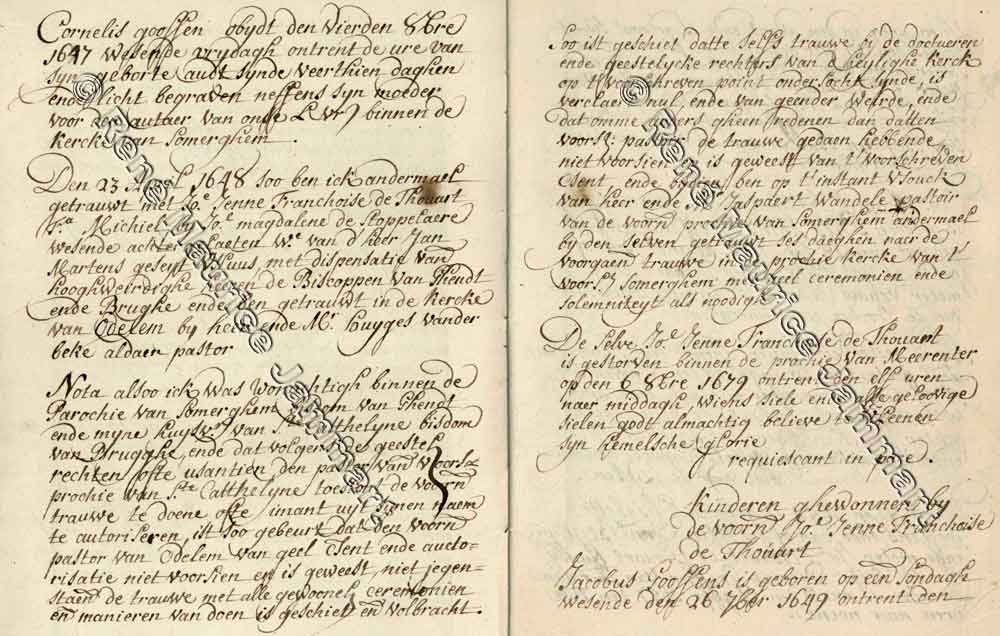 Cornelis goossen obydt den Vierden 8bre
1647 Wesende vrydagh ontrent de ure van
syn geborte audt synde Veerthien daghen
ende licht begraven neffens syn moeder
voor den autaer van onse L. vr. binnen de
kercke van Somerghem.
Den 23 1648 soo ben ick andermael
getrauwt met Jo.e Jenne Franchoise de Thouart
f.a Michiel by Jo.e magdalene de Stoppelaere
wesende achter laeten W.e van d'heer Jan
Martens geseyt Huus met dispensatie van
hooghweirdighe heeren de Biscoppen Van Ghendt
ende Brughe ende den getrauwt in de kercke
van Odelem by heer ende M.r Huyges vander
beke aldaer pastor
Nota alsoo ick was woonachtigh binnen de
Parochie van Somerghem bisdom van Ghendt
ende myne huysvr. van S.te Catthelyne bisdom
van Brugghe, ende dat volgende de geestel.
rechten ofte usantien den pastor van voors.
prochie van S.te Catthelyne toestont de voorn.
trauwe te doene ofte imant uyt synen naem
te autoriseren, ist soo gebeurt dat den voorn.
pastor van Odelem van geel Csent ende aucto-
risatie niet voorsien en is geweest, niet jegen-
staen de trauwe met alle gewoonel. ceremonien
en manieren van doen is geschiet en volbracht.
Soo ist geschiet datte selfs trauwe bi de doctueren
ende geestelycke rechters van d'heylighe kerck
op t'voorschreven point ondersocht synde, is
verclaert nul, ende van geender weirde, ende
dat omme anders gheen redenen dan datten
voors. pastoir de trauwe gedaen hebbende
niet voorsien en is geweest van t' voorschreven
Csent ende bydien ben op t'instant vsouck
van heer ende Jaspaert Wandele pastoir
van de voorn. prochie van Somerghem andermael
by den selven getrauwt ses daeghen naer de
voorgaen trauwe in de prochie kercke van t'
voors. Somerghem met veel ceremonien ende
solemnityt als noodigh
De selve Jo.e Jenne Franchoise de Thouart
is gestorven binnen de prochie van Meerenter
op den 6 8bre 1679 ontrent den elf uren
naer middagh, wiens siele ende alle geloovige
sielen godt almachtig believe te verleenen
syn hemelsche glorie
requiescant in pace.
Kinderen ghewonnen by
de voorn. Jo.e Jenne Franchoise
de Thouart
Jacobus Goossens is geboren op een Sondagh
wesende den 26 7ber 1649 ontrent den